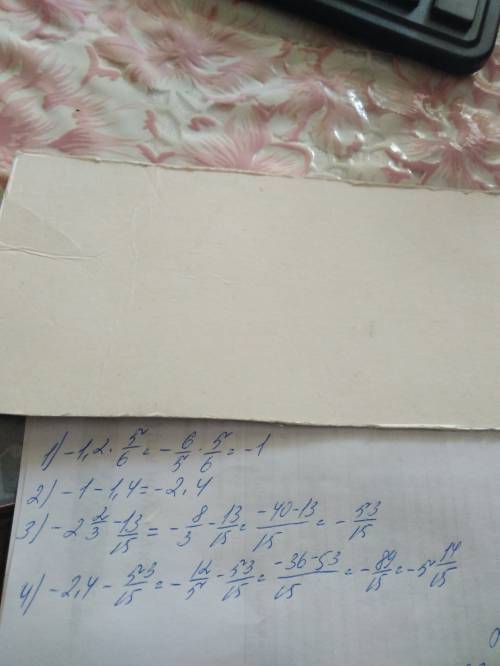 1) -1,2 · 5/6 = - 6/5 · 5/6 = -1
2) -1 - 1,4 = -2,4
3) -2 2/3 - 13/15 = - 8/3 - 13/15 = -40-13/15 = - 53/15
4) -2,4 - 53/15 = - 12/5 - 53/15 = -36-53/15 = - 89/15 = -5 14/15